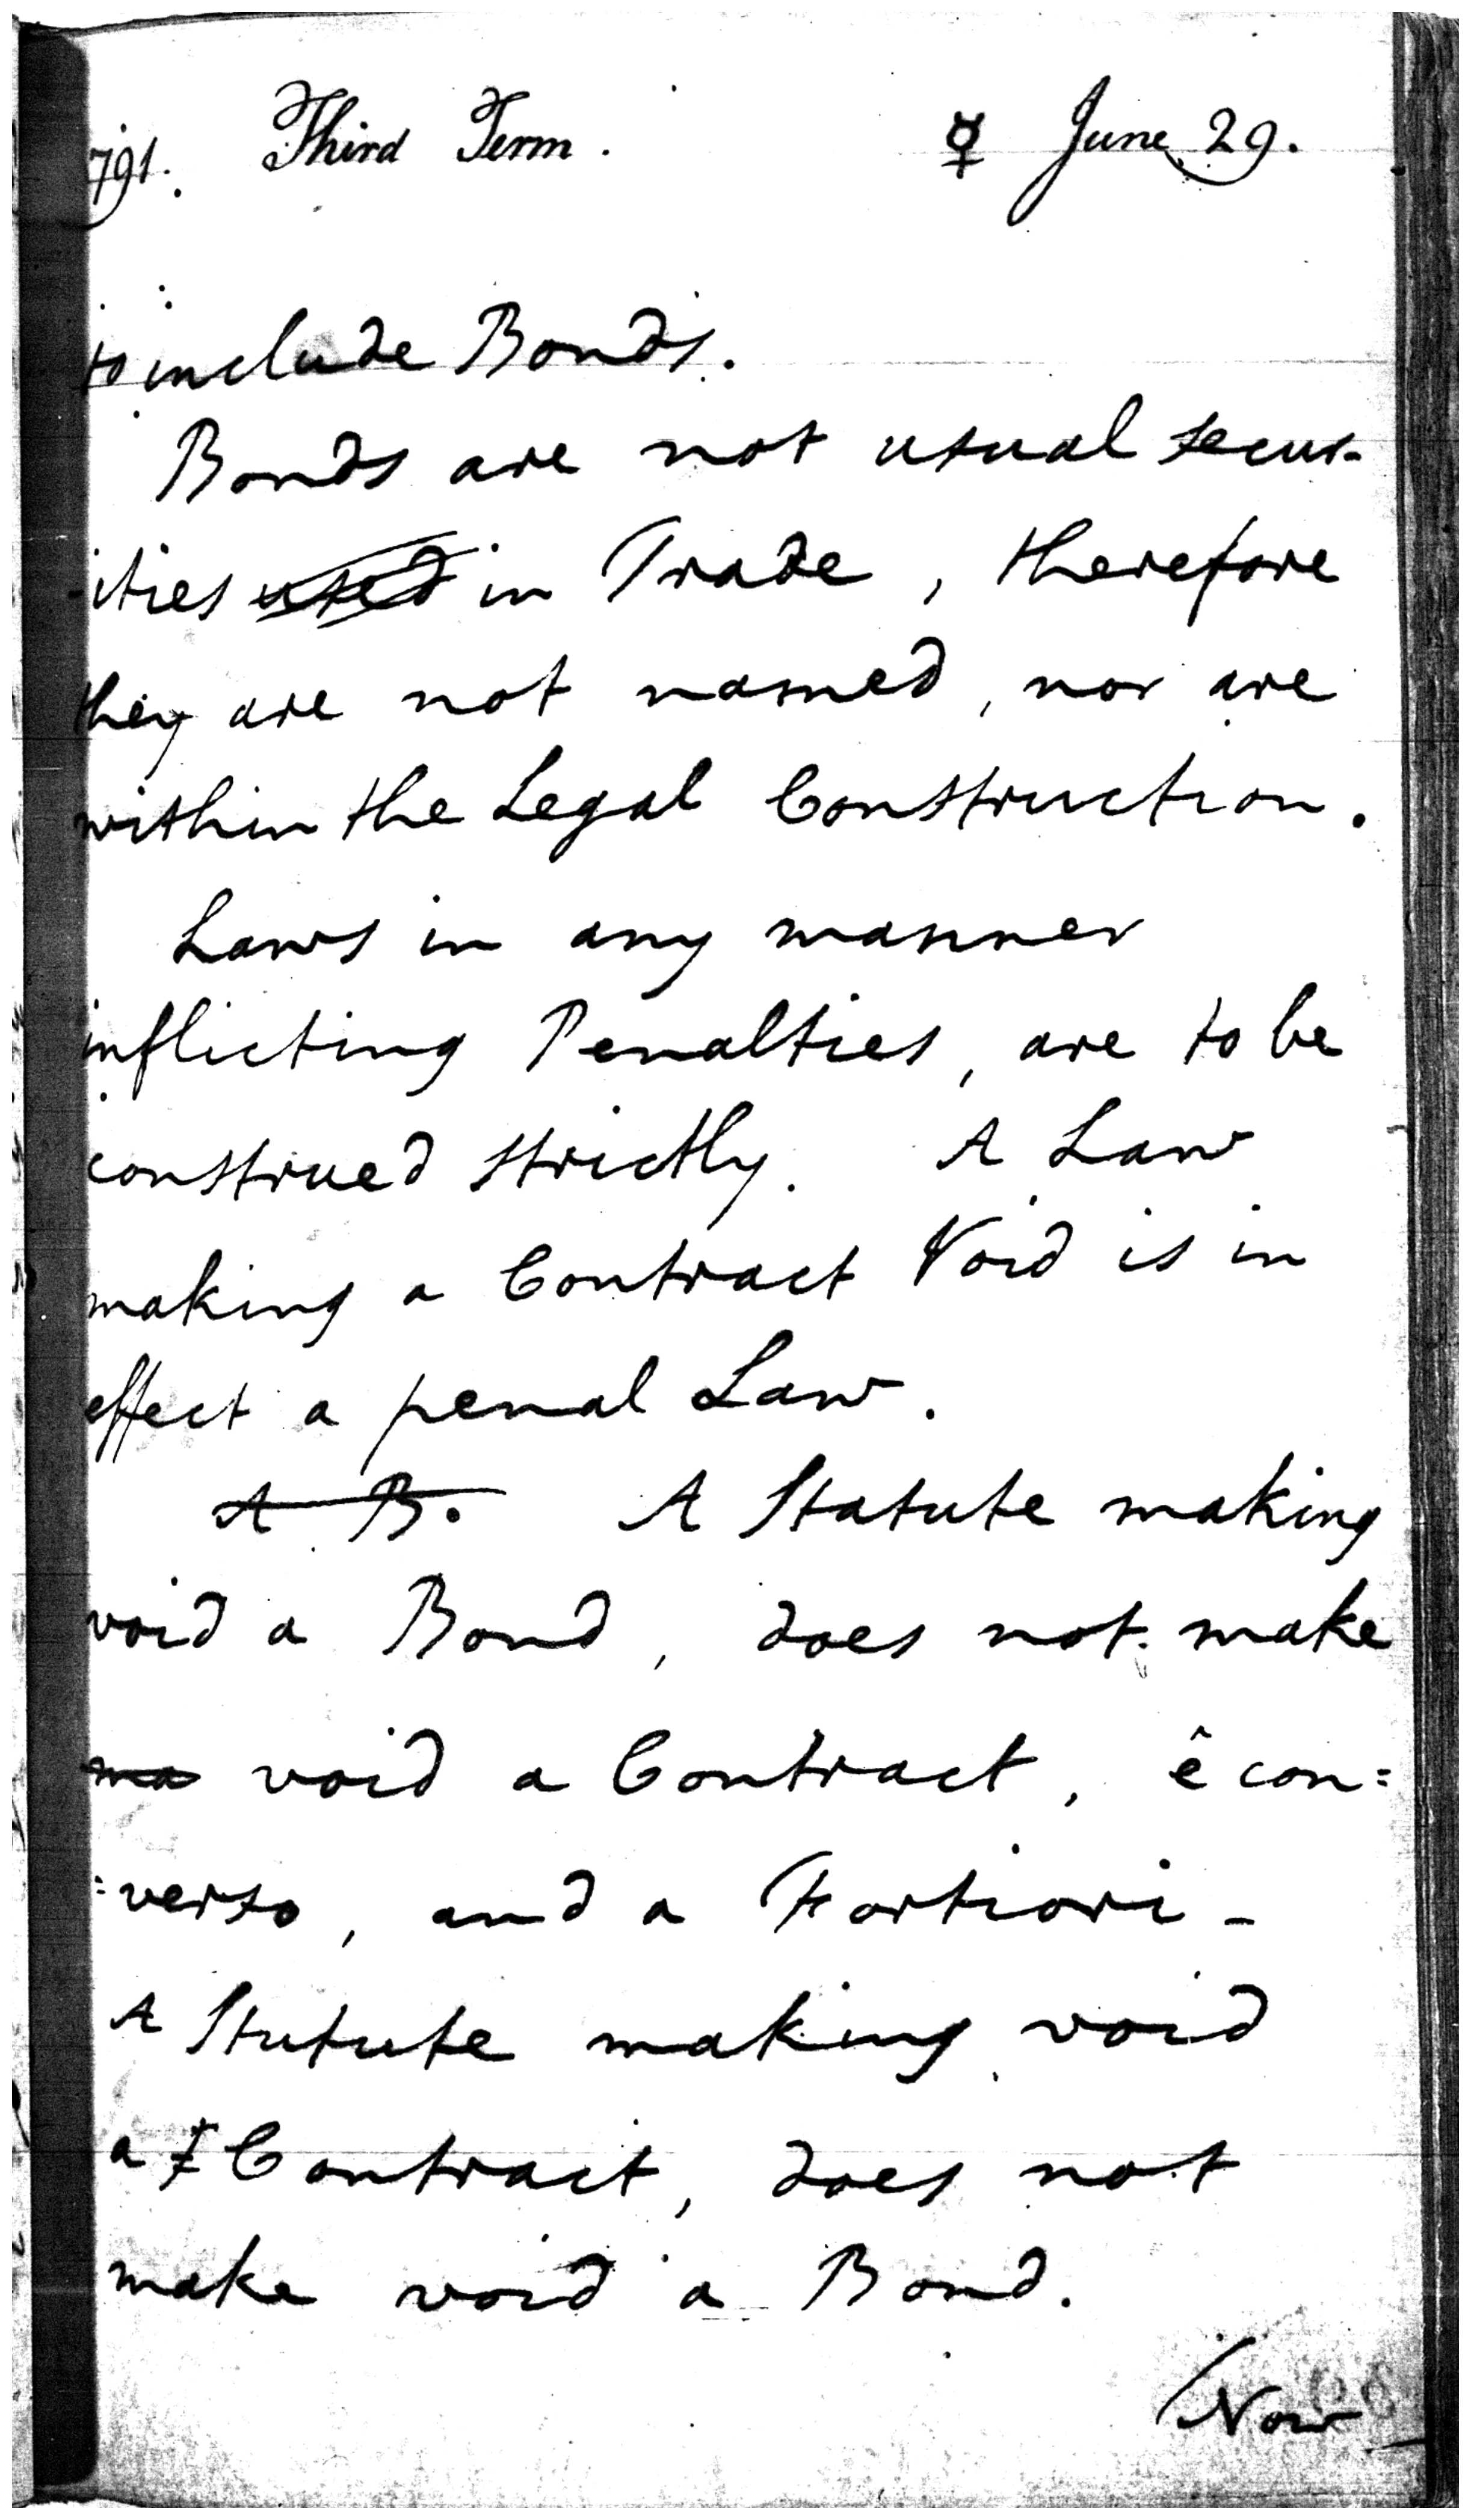 791. Third Term. ☿ June 29.
to include Bonds.
Bonds are not usual secur-
-ities used in Trade, therefore
they are not named, nor are
within the Legal Construction.
Laws in any manner
inflicting Penalties, are to be
construed strictly. A Law
making a Contract Void is in
effect a penal Law.
A B. A Statute making
void a Bond, does not make
ma void a Contract, ê con=
=verso, and a Fortiori -
A Statute making void
a Contract, does not
make void a Bond.
Now